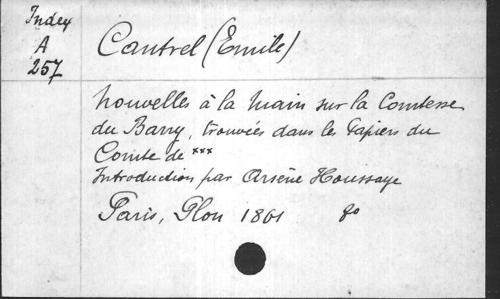 Index
A
257
Cantrel (Emile)
Nouvelles à la Main sur la Comtesse
du Barry, trouvées dans les Papiers du
Comte de ***
Introduction par Arsène Houssaye
Paris, Plon 1861 8o